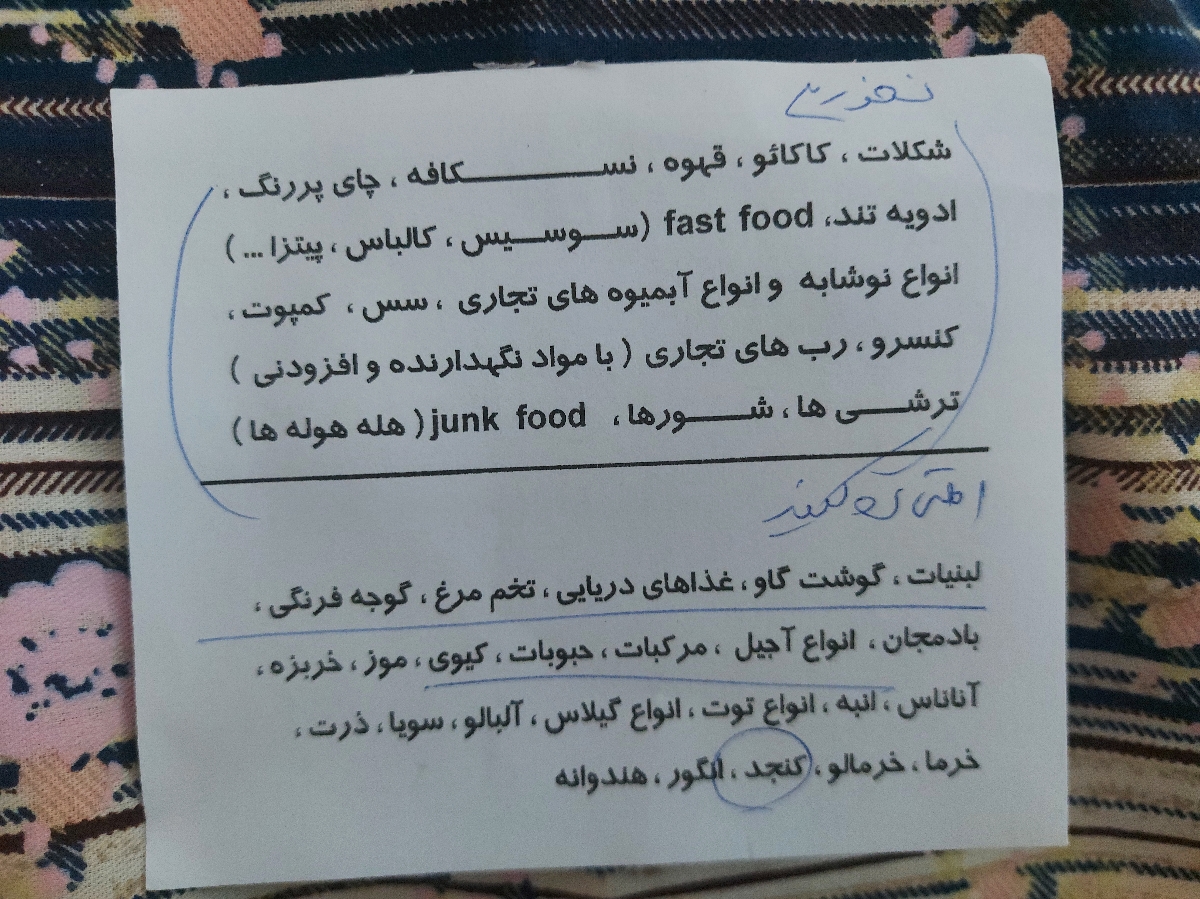 نخورید
شکلات ، کاکائو ، قهوه ، نسکافه ، چای پررنگ ،
ادویه تند، fast food (سوسیس ، کالباس ، پیتزا ...)
انواع نوشابه و انواع آبمیوه های تجاری ، سس ، کمپوت ،
کنسرو ، رب های تجاری ( با مواد نگهدارنده و افزودنی )
ترشی ها ، شورها ، junk food ( هله هوله ها )
لبنیات ، گوشت گاو ، غذاهای دریایی ، تخم مرغ ، گوجه فرنگی ،
بادمجان ، انواع آجیل ، مرکبات ، حبوبات ، کیوی ، موز ، خربزه ،
آناناس ، انبه ، انواع توت ، انواع گیلاس ، آلبالو ، سویا ، ذرت ،
خرما ، خرمالو ، کنجد ، انگور ، هندوانه